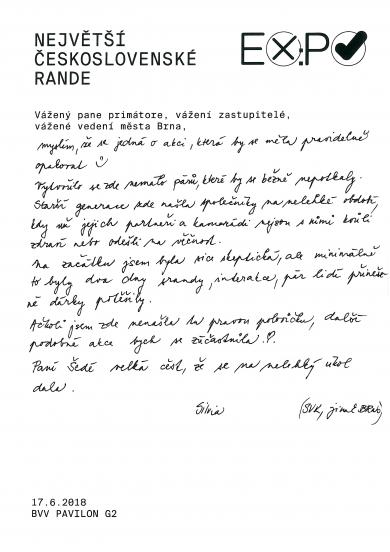 NEJVĚTŠÍ
ČESKOSLOVENSKÉ
RANDE
EX:PO
Vážený pane primátore, vážení zastupitelé,
vážené vedení města Brna,
myslím, že se jedná o akci, která by se měla pravidelně
opakovat
Vytvořilo se zde nemálo párů, které by se běžně nepotkaly.
Starší generace zde našla společníky na nelehké období,
kdy už jejich partneři a kamarádi nejsou s nimi kvůli
zdraví nebo odešli na věčnost.
Na začátku jsem byla více skeptická, ale minimálně
to byly dva dny srandy, interakce, pár lidí
né dárky potěšily.
Ačkoli jsem zde nenašla tu pravou polovičku, další
podobné akce bych se zúčastnila.
Paní Šedé velká čest, že se na nelehký úkol
dala.
Silvia (SVK, BRNO)
17.6.2018
BVV PAVILON G2